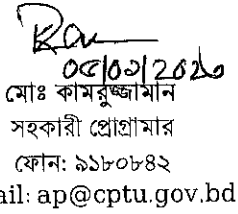 ০৫/০১/২০২৩
মোঃ কামরুজ্জামান
সহকারী প্রোগ্রামার
ফোন: ৯১৮০৮৪২
ail: ap@cptu.gov.bd